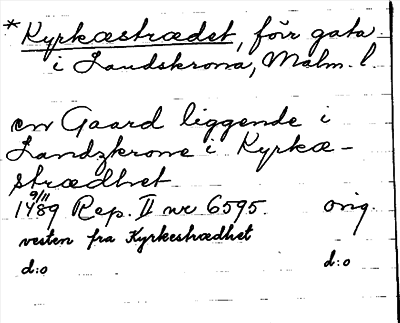 *Kyrkæstrædet, förr gata
i Landskrona, Malm. l.
en Gaard liggende i
Landzkrone i Kyrkæ-
strædhet
9/11
1489 Rep. II nr 6595. orig.
vesten fra Kyrkestrædhet
d:o d:o